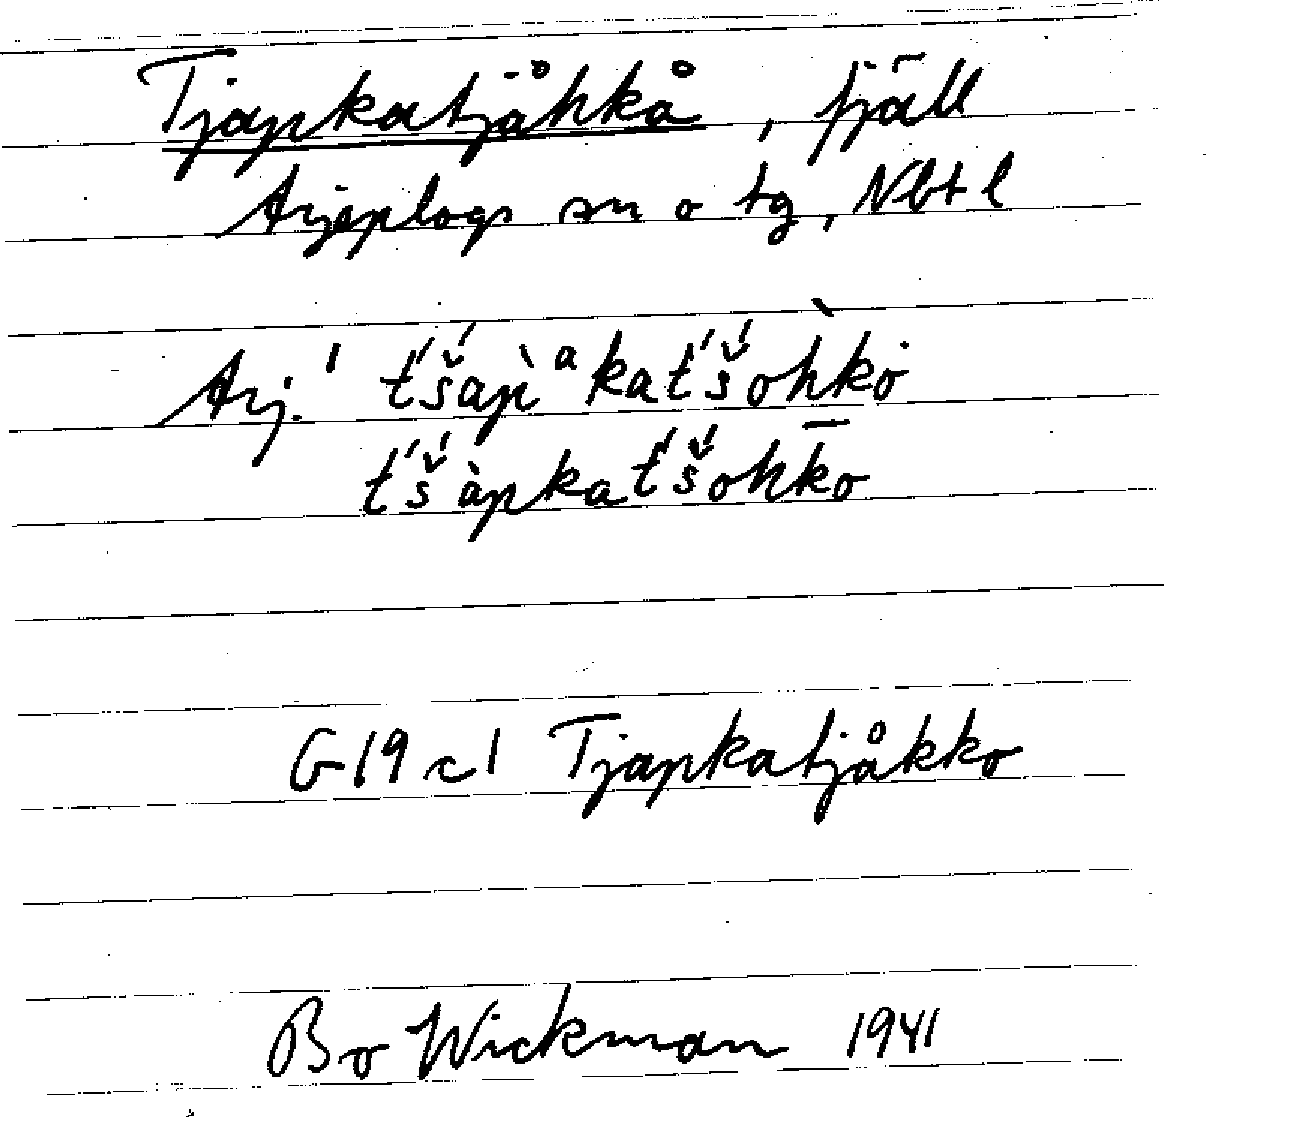 Tjapkatjåhkå, fjäll
Arjeplogs sn o tg, Nbt l
Arj. ˈt́š́ap̀ᵃkat́š́oh̀kȯ
t́š́àpkat́š́oh̄ko
G 19 c 1 Tjapkatjåkko
Bo Wickman 1941